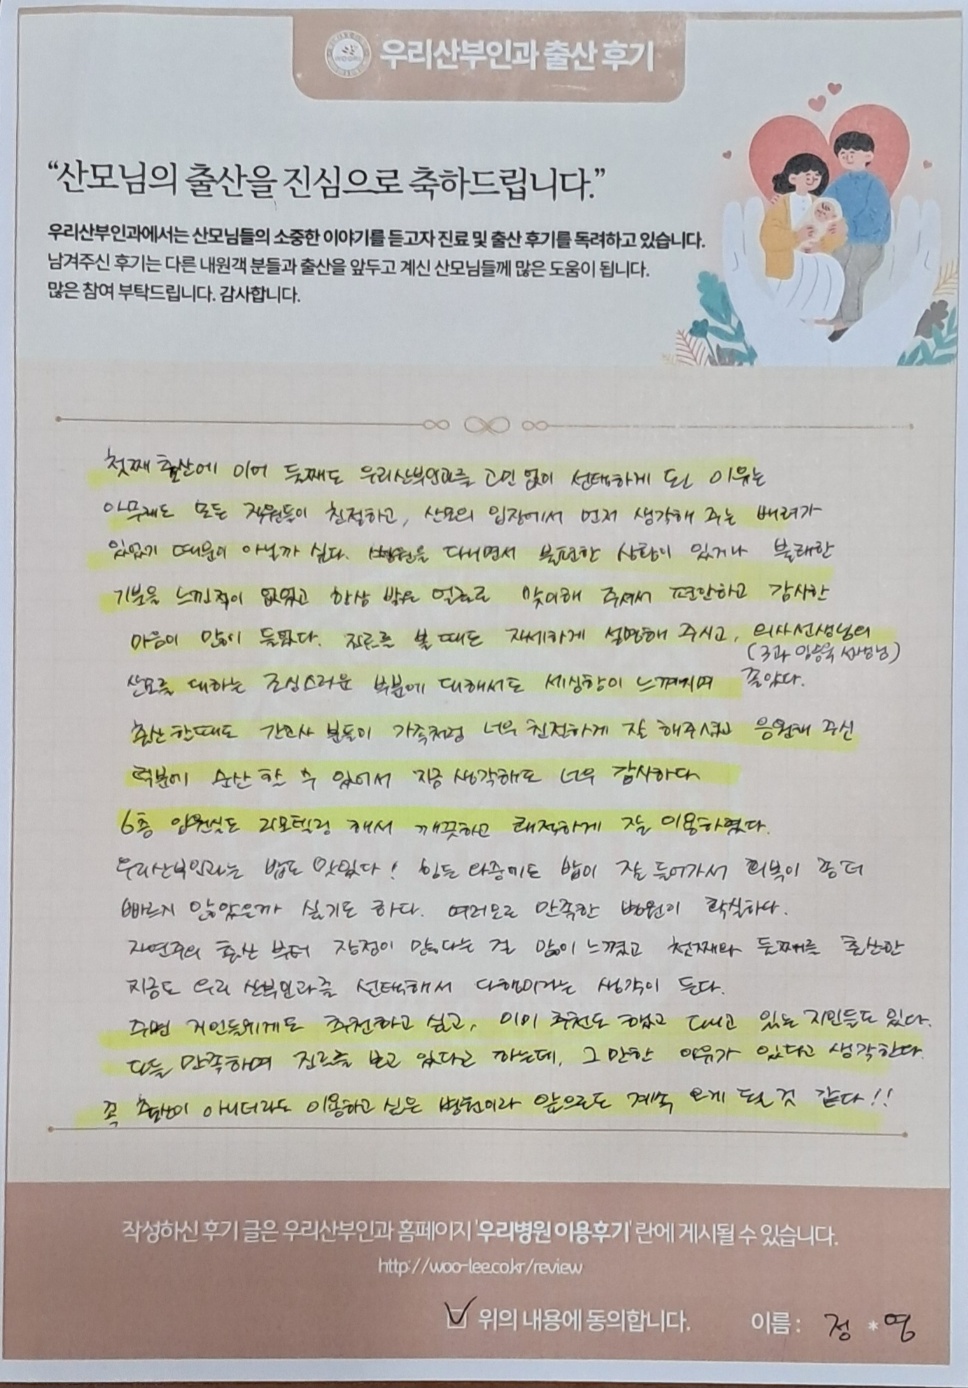 우리산부인과 출산 후기
“산모님의 출산을 진심으로 축하드립니다.”
우리산부인과에서는 산모님들의 소중한 이야기를 듣고자 진료 및 출산 후기를 독려하고 있습니다.
남겨주신 후기는 다른 내원객 분들과 출산을 앞두고 계신 산모님들께 많은 도움이 됩니다.
많은 참여 부탁드립니다. 감사합니다.
첫째 출산에 이어 둘째도 우리산부인과를 고민 없이 선택하게 된 이유는
아무래도 모든 직원들이 친절하고, 산모의 입장에서 먼저 생각해 주는 배려가
있었기 때문이 아닐까 싶다. 병원을 다니면서 불편한 상황이 있거나 불쾌한
기분을 느낀적이 없었고 항상 밝은 얼굴로 맞이해 주셔서 편안하고 감사한
마음이 많이 들었다. 진료를 볼 때도 자세하게 설명해 주시고, 의사선생님의
(3과 선생님)
산모를 대하는 조심스러운 부분에 대해서도 세심함이 느껴지며 좋았다.
출산 한때도 간호사 분들이 가족처럼 너무 친절하게 잘 해주셨고 응원해 주신
덕분에 순산 할 수 있어서 지금 생각해도 너무 감사하다
6층 입원실도 리모델링 해서 깨끗하고 쾌적하게 잘 이용하였다.
우리산부인과는 밥도 맛있다! 힘든 와중에도 밥이 잘 들어가서 회복이 좀 더
빠르지 않았을까 싶기도 하다. 여러모로 만족한 병원이 확실하다.
자연주의 출산 부터 장점이 많다는 걸 많이 느꼈고 첫째와 둘째를 출산한
지금도 우리 산부인과를 선택해서 다행이라는 생각이 든다.
주변 지인들에게도 추천하고 싶고, 이미 추천도 했고 다니고 있는 지인들도 있다.
다들 만족하며 진료를 보고 있다고 하는데, 그 만한 이유가 있다고 생각한다.
꼭 출산이 아니더라도 이용하고 싶은 병원이라 앞으로도 계속 오게 될 것 같다!!
작성하신 후기 글은 우리산부인과 홈페이지 '우리병원 이용후기' 란에 게시될 수 있습니다.
http://woo-lee.co.kr/review
위의 내용에 동의합니다. 이름 : 정 * 영